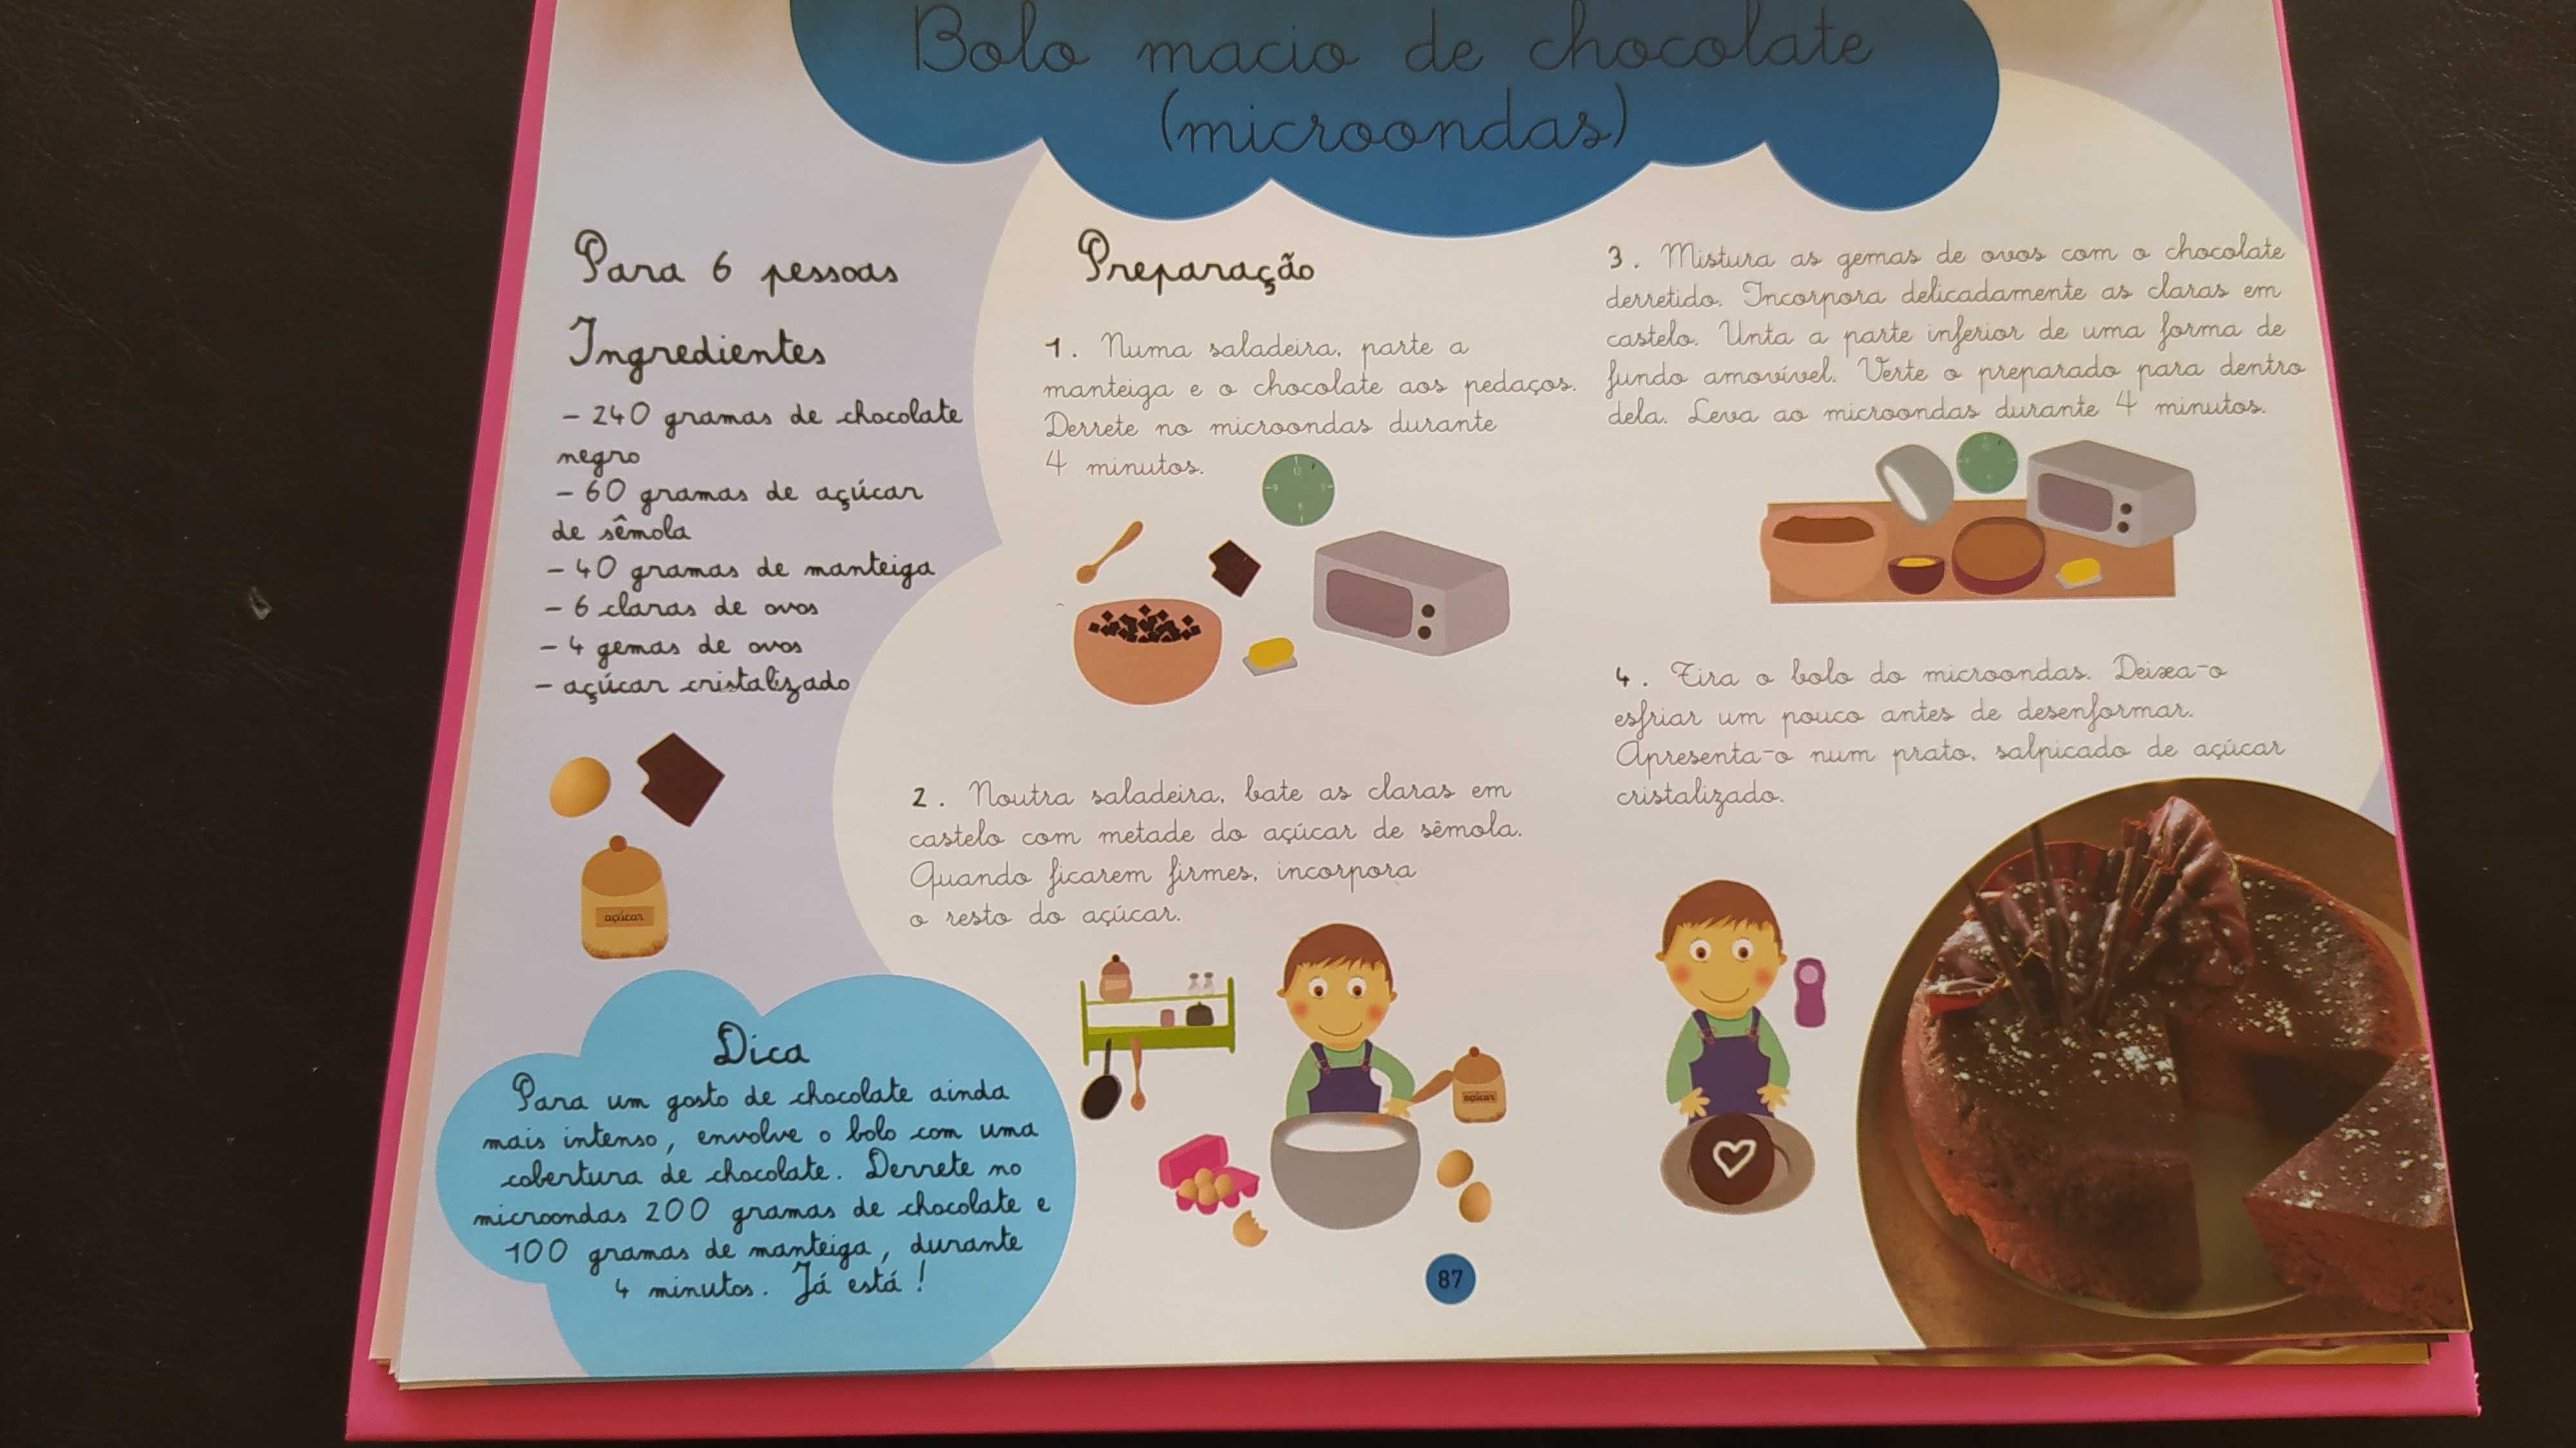 Bolo macio de chocolate
(microondas)
Para 6 pessoas
Ingredientes
- 240 gramas de chocolate
negro
- 60 gramas de açúcar
de sêmola
- 40 gramas de manteiga
- 6 claras de ovos
- 4 gemas de ovos
- açúcar cristalizado
açúcar
Dica
Para um gosto de chocolate ainda
mais intenso, envolve o bolo com uma
cobertura de chocolate. Derrete no
microondas 200 gramas de chocolate e
100 gramas de manteiga, durante
4 minutos. Já está!
Preparação
1. Numa saladeira, parte a
manteiga e o chocolate aos pedaços.
Derrete no microondas durante
4 minutos.
2. Noutra saladeira, bate as claras em
castelo com metade do açúcar de sêmola.
Quando ficarem firmes, incorpora
o resto do açúcar.
açúcar
3. Mistura as gemas de ovos com o chocolate
derretido. Incorpora delicadamente as claras em
castelo. Unta a parte inferior de uma forma de
fundo amovível. Verte o preparado para dentro
dela. Leva ao microondas durante 4 minutos.
4. Tira o bolo do microondas. Deixa-o
esfriar um pouco antes de desenformar.
Apresenta-o num prato, salpicado de açúcar
cristalizado.
87